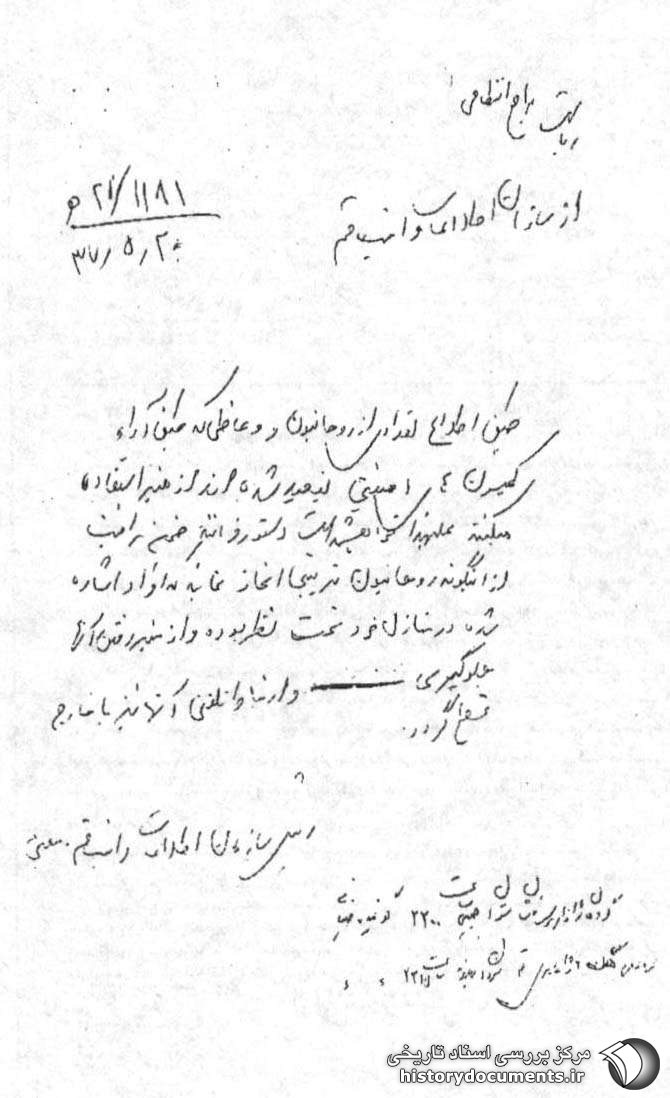 ریاست مراجع انتظامی
از سازمان اطلاعات و امنیت قم
۲۱/۱۱۸۱ ه
۳۷/۵/۲۰
طبق اطلاع تعدادی از روحانیون و وعاظی که طبق آراء
کمیسیون های امنیتی تبعید شده اند از منبر استفاده
میکنند علیهذا خواهشمند است دستور فرمائید ضمن مراقبت
از اینگونه روحانیون ترتیبی اتخاذ نمایند که افراد اشاره
شده در منازل خود تحت نظر بوده و از منبر رفتن آنها
جلوگیری و ارتباط تلفنی آنها نیز با خارج
قطع گردد.
رئیس سازمان اطلاعات و امنیت قم. معینی
۲۲۰۰
قم
مرکز بررسی اسناد تاریخی
historydocuments.ir